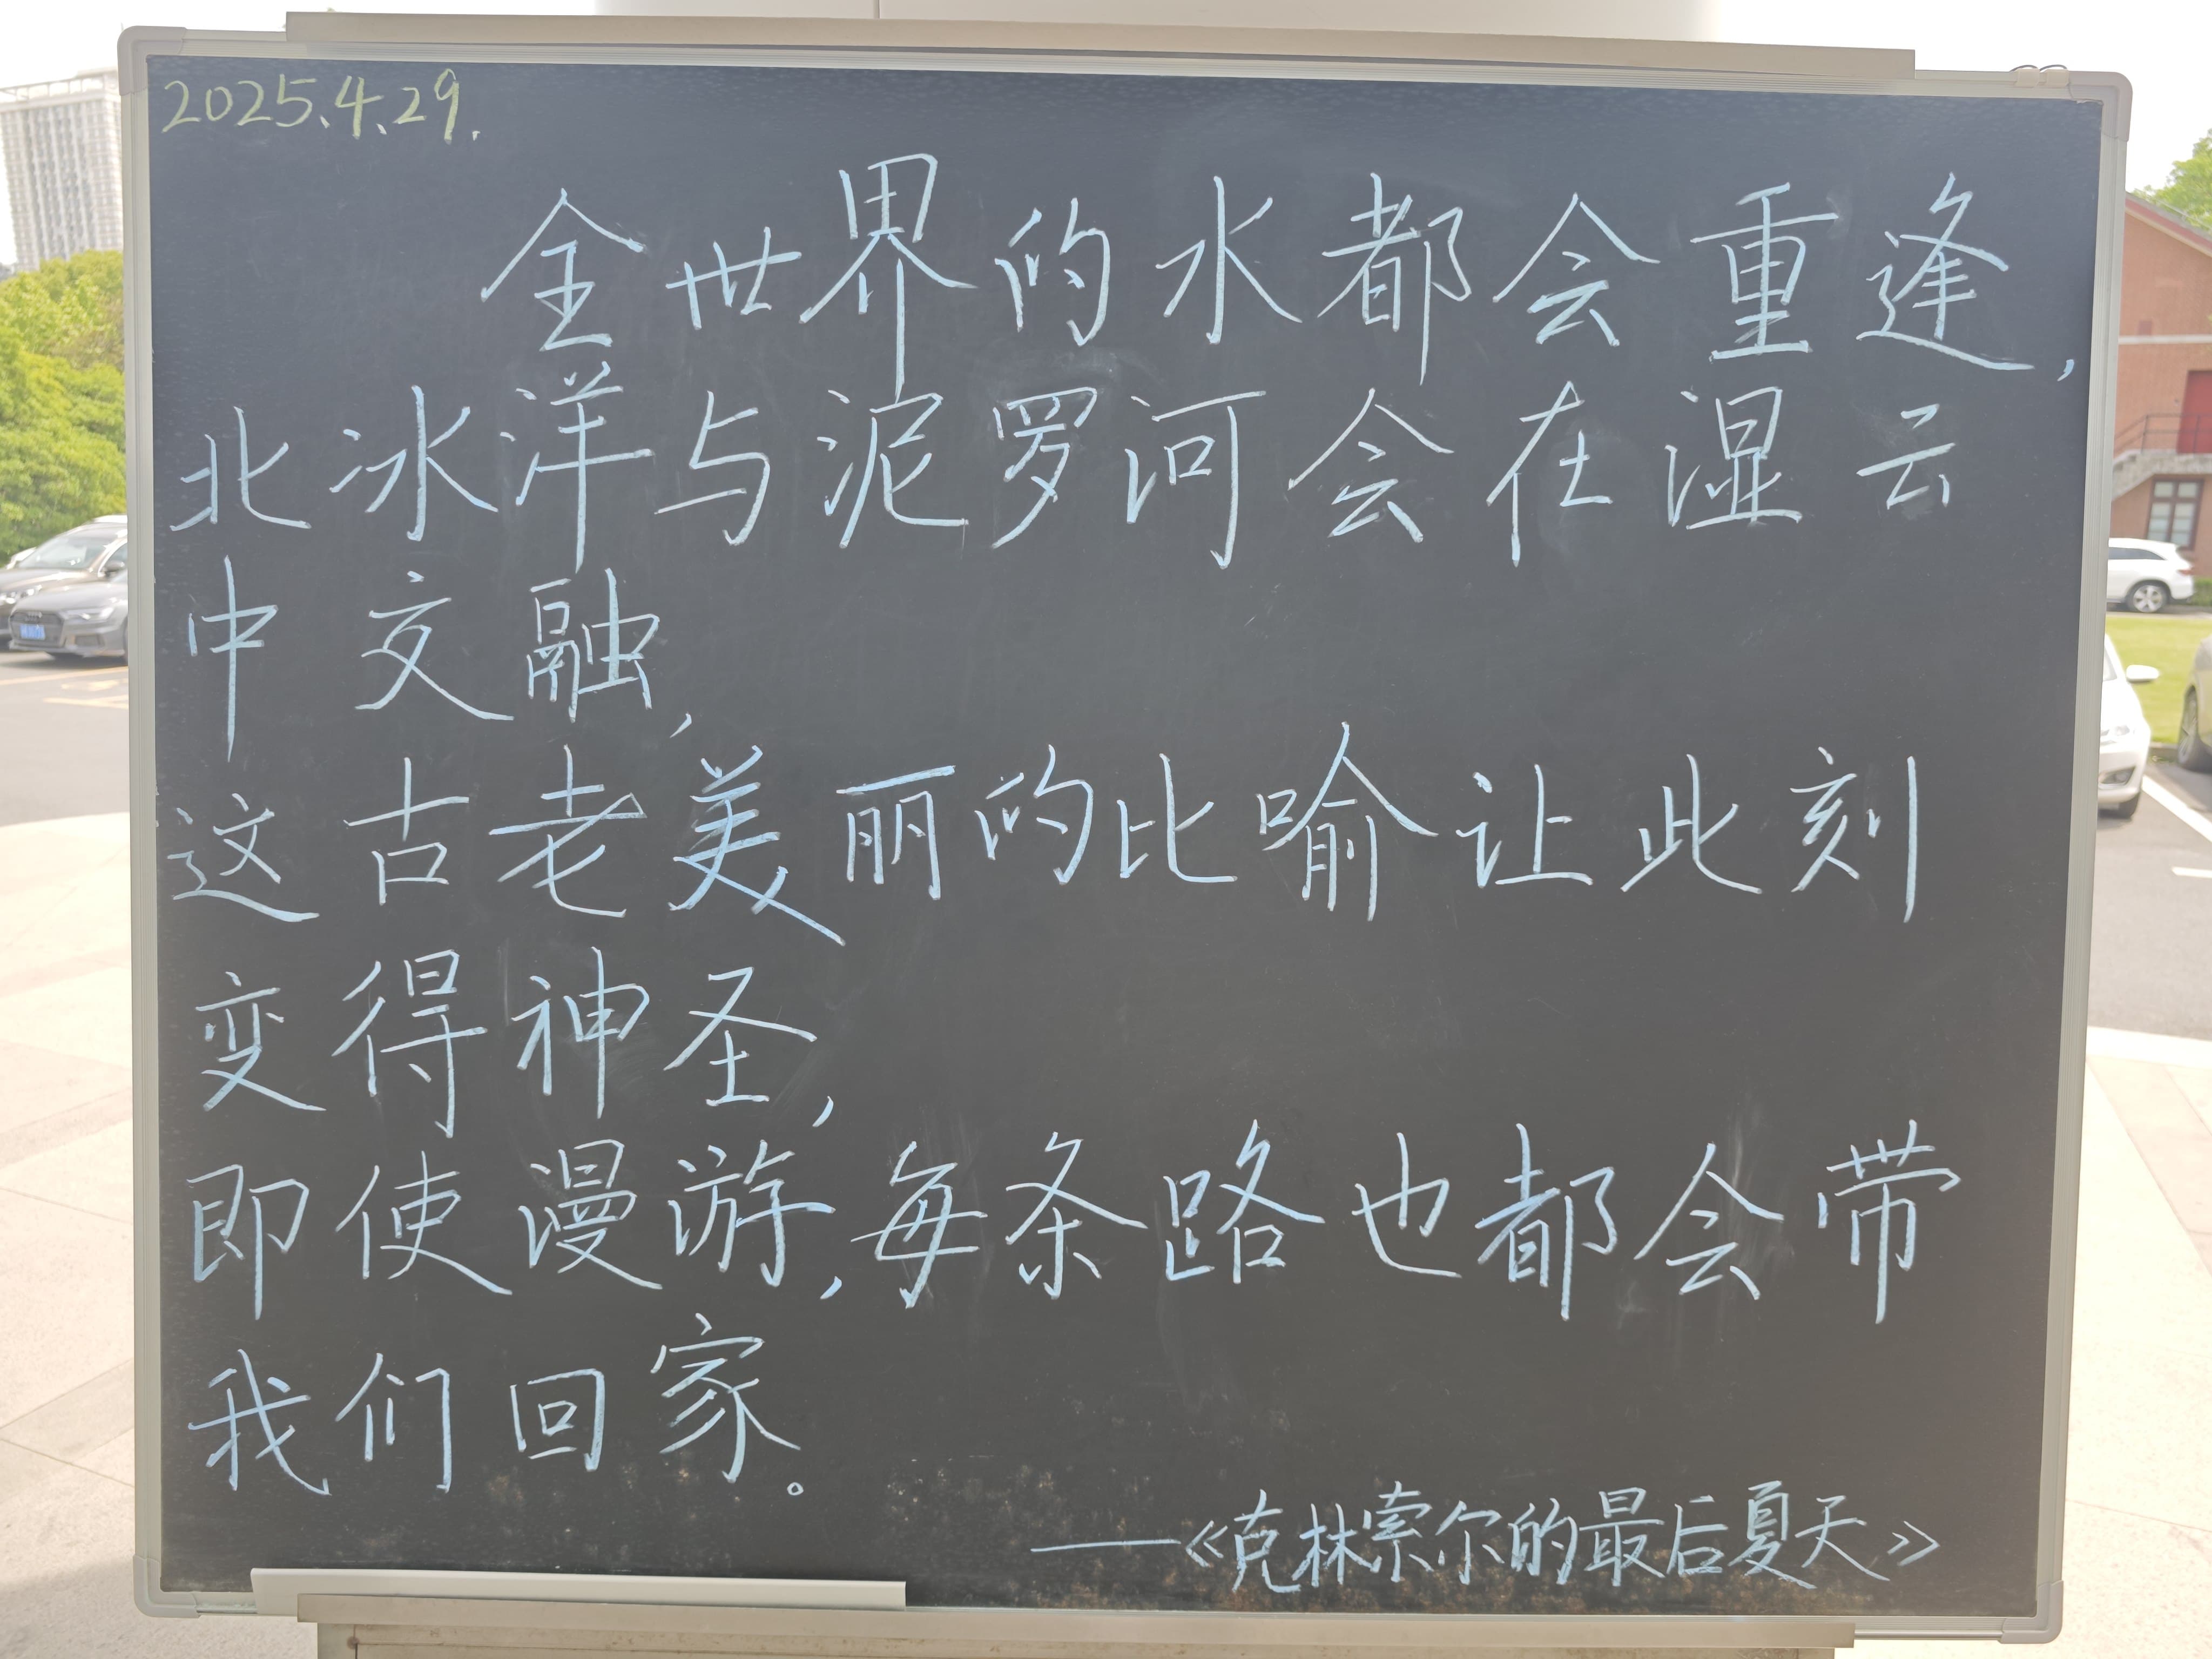 2025.4.29.
全世界的水都会重逢,
北冰洋与泥罗河会在湿云
中交融,
这古老美丽的比喻让此刻
变得神圣,
即使漫游,每条路也都会带
我们回家。
——《克林索尔的最后夏天》